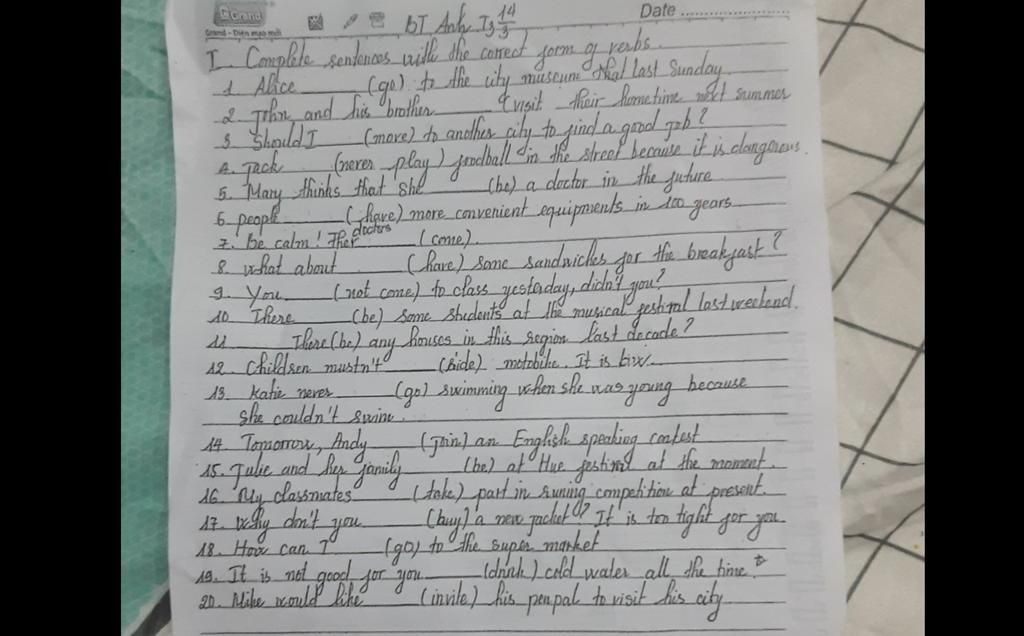 Grand
Date
Grand - Diện mạo mới
BT Anh T3 14/3
I. Complete sentences with the correct form of verbs.
1. Alice ______ (go) to the city museum that last Sunday
2. John and his brother ______ (visit their hometime next summer
3. Should I ______ (move) to another city to find a good job?
4. Jack ______ (never play) foodball in the street because it is dangerous.
5. Mary thinks that she ______ (be) a doctor in the future
6. people ______ (have) more convenient equipments in 100 years
7. Be calm! The doctors ______ (come).
8. What about ______ (have) some sandwiches for the breakfast?
9. You ______ (not come) to class yesterday, didn't you?
10. There ______ (be) some students at the musical festival last weekend.
11. ______ There (be) any houses in this region last decade?
12. Children mustn't ______ (ride) motobike. It is
13. Katie never ______ (go) swimming when she was young because
she couldn't swim.
14. Tomorrow, Andy ______ (join) an English speaking contest
15. Julie and her family ______ (be) at Hue festival at the moment.
16. My classmates ______ (take) part in runing competition at present.
17. Why don't you ______ (buy) a new jacket? It is too tight for you
18. How can I ______ (go) to the super market
19. It is not good for you ______ (drink) cold water all the time.
20. Mike would like ______ (invite) his penpal to visit his city